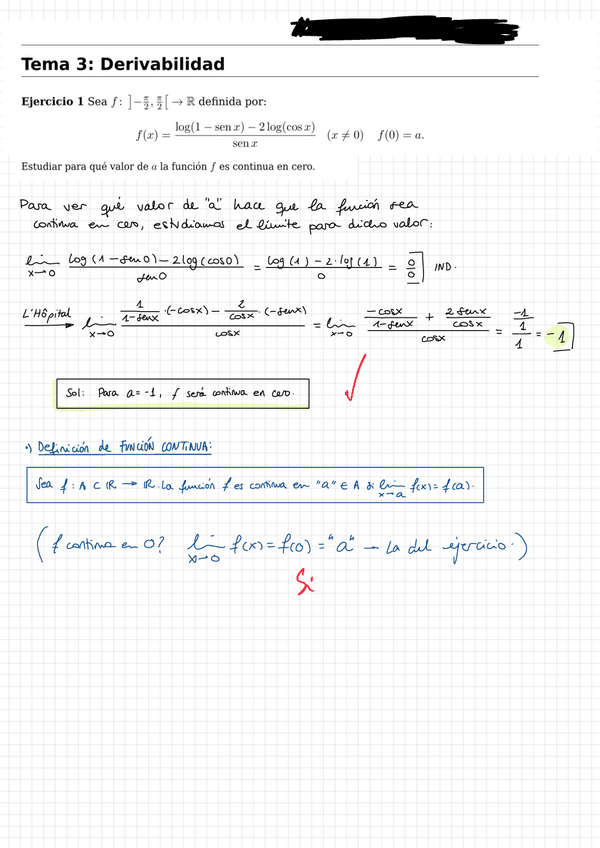 Tema 3: Derivabilidad
Ejercicio 1 Sea f: ]−π/2, π/2[ → ℝ definida por:
f(x) = (log(1 − sen x) − 2 log(cos x)) / sen x (x ≠ 0) f(0) = a.
Estudiar para qué valor de a la función f es continua en cero.
Para ver qué valor de "a" hace que la función sea
continua en cero, estudiamos el límite para dicho valor:
lim x→0 (log(1−sen0)−2log(cos0)) / sen0 = (log(1)−2·log(1)) / 0 = [0/0] IND.
L'Hôpital → lim x→0 (1/(1−senx)·(−cosx) − 2/cosx·(−senx)) / cosx = lim x→0 (−cosx/(1−senx) + 2senx/cosx) / cosx = (−1/1)/1 = −1
Sol: Para a=-1, f será continua en cero.
·) Definición de FUNCIÓN CONTINUA:
Sea f: A ⊂ ℝ → ℝ. La función f es continua en "a" ∈ A si lim x→a f(x) = f(a).
(f continua en 0? lim x→0 f(x) = f(0) = "a" → La del ejercicio.)
Si